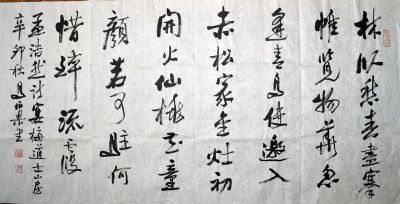 林卧愁春尽搴
帷览物华忽
逢青鸟使邀入
赤松家金灶初
开火仙桃正
顏若可驻何
惜醉流霞
孟浩然诗宴梅道士山房
辛卯秋月